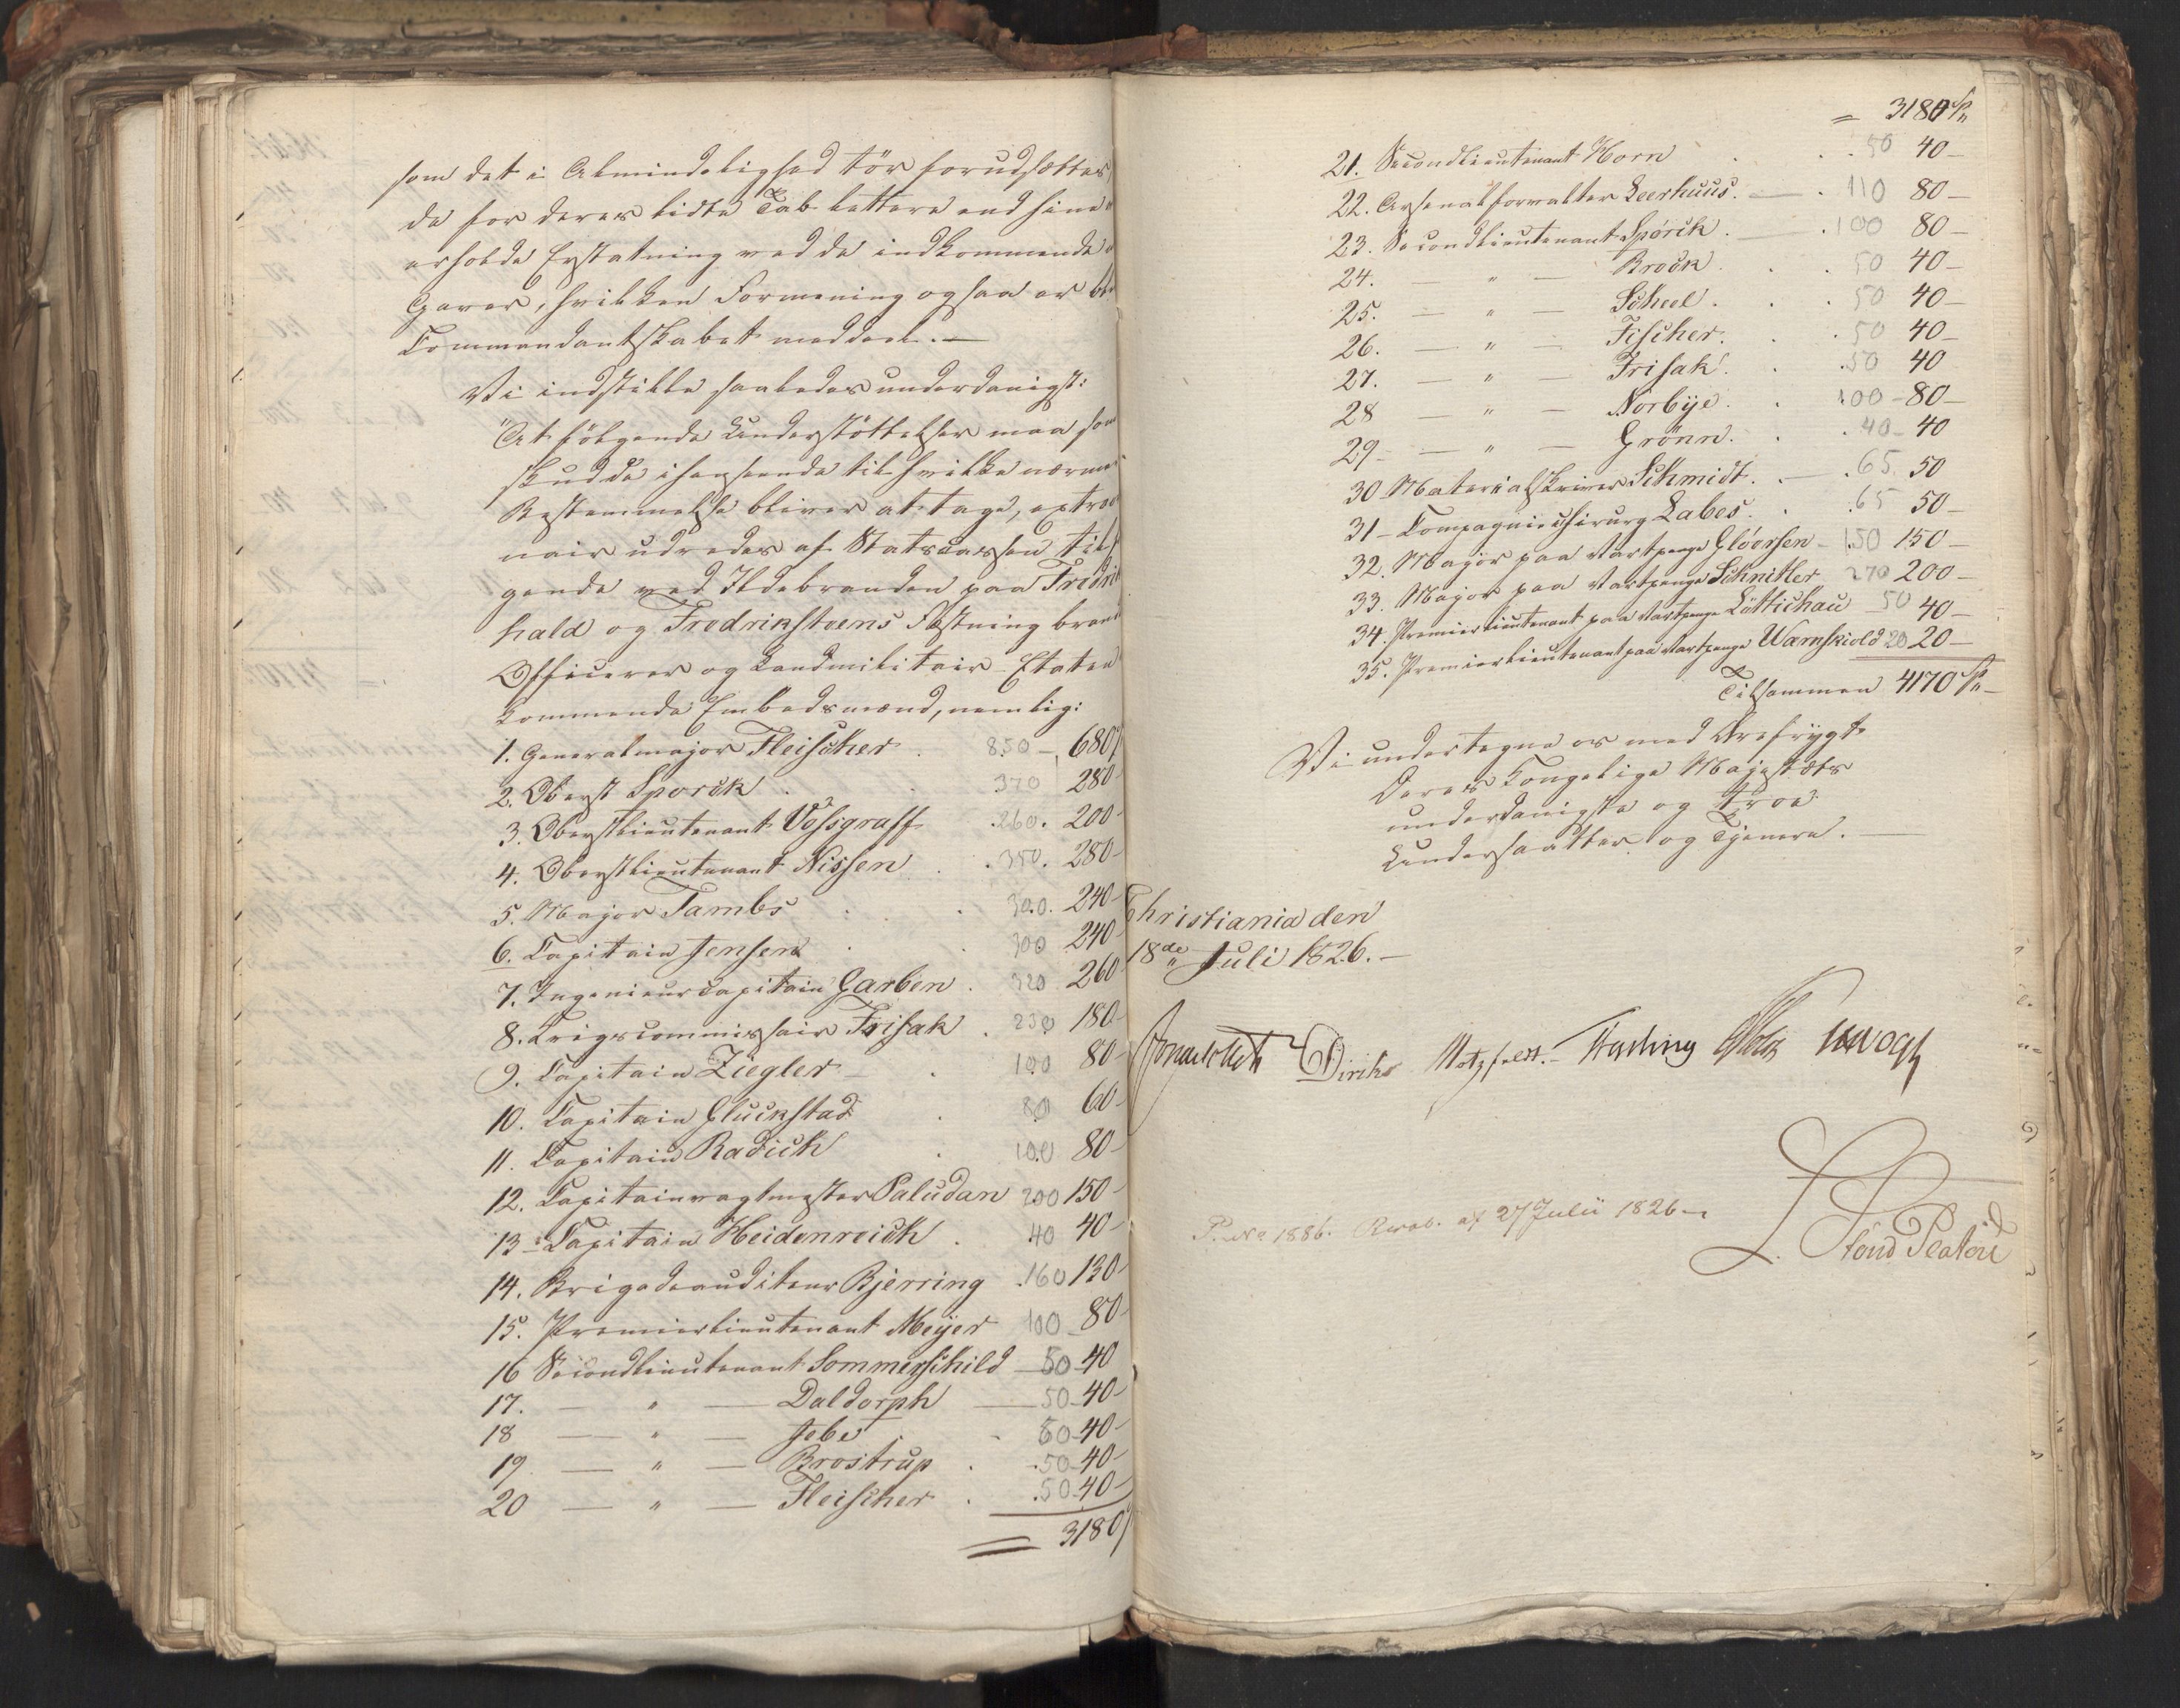 som det i Almindelighed tör forudsættes,
da for deres lidte Tab lettere end hine
erholde Erstatning ved de indkommende
Gaver, hvilken Formening ogsaa er
Commandantskabet meddeelt. —
Vi indstille saaledes underdanigst:
"At følgende Understöttelser maa som
skud, i henseende til hvilke nærme
Bestemmelse bliver at tage, extra
nair udredes af Statscassen til
gende ved Ildebranden paa Fredri
hald og Fredrikstens Fæstning brand
Officerer og Landmilitair Etaten
kommende Embedsmænd, nemlig:
1. Generalmajor Fleischer . 850 — 680
2. Oberst Sporck . . 370 280
3. Oberstlieutenant Vossgraff . 260. 200-
4. Oberstlieutenant Nissen . . 350. 280-
5. Major Tambs . . 300. 240-
6. Capitain Jensen . . 300 240
7. Ingenieurcapitain Garben . 320 260
8. Krigscommissair Frisak . 230 180-
9. Capitain Ziegler — . 100 80-
10. Capitain Gluckstad . 80 60-
11. Capitain Radich . 100 80-
12. Capitainvagtmester Paludan 200 150-
13. Capitain Heidenreich . 40 40-
14. Brigadeauditeur Bjerring . 160 130-
15. Premierlieutenant Meyer 100 80-
16 Secondlieutenant Sommerschild — 50-40
17. — " — Daldorph — 50-40-
18 — " — Jebe . - 50-40-
19 — " — Brostrup . . 50-40-
20 — " — Fleischer . . 50-40-
= 3180
= 3180 Sp
21. Secondlieutenant Horn . . . 50 40-
22. Arsenalforvalter Leerhuus. — . 110 80-
23. Secondlieutenant Spörck . — . 100 80-
24. — " — Brock . . . 50 40-
25. — " — Scheel . . . 50 40-
26. — " — Fischer. . . 50 40-
27. — " — Frisak . . . 50 40
28 — " — Norbye . . 100-80-
29- — " — Grönn. . . 40- 40
30 Materialskriver Schmidt. . — . 65. 50
31- Compagniechirurg Labes. . . 65 50-
32. Major paa Vartpenge Glöersen - 150 150-
33. Major paa Vartpenge Schnitler 270 200-
34. Premierlieutenant paa Vartpenge Lüttichau 50 40-
35. Premierlieutenant paa Vartpenge Wamskiold 20 20-
Tilsammen 4170 Sp-
Vi undertegne os med Ærefrygt
Deres Kongelige Majestæts
underdanigste og troe
Undersaatter og Tjenere. —
Christiania den
18de Juli 1826. —
Diriks Motzfeldt. Vogt
P. No 1886. Resol. af 27 Julii 1826 -